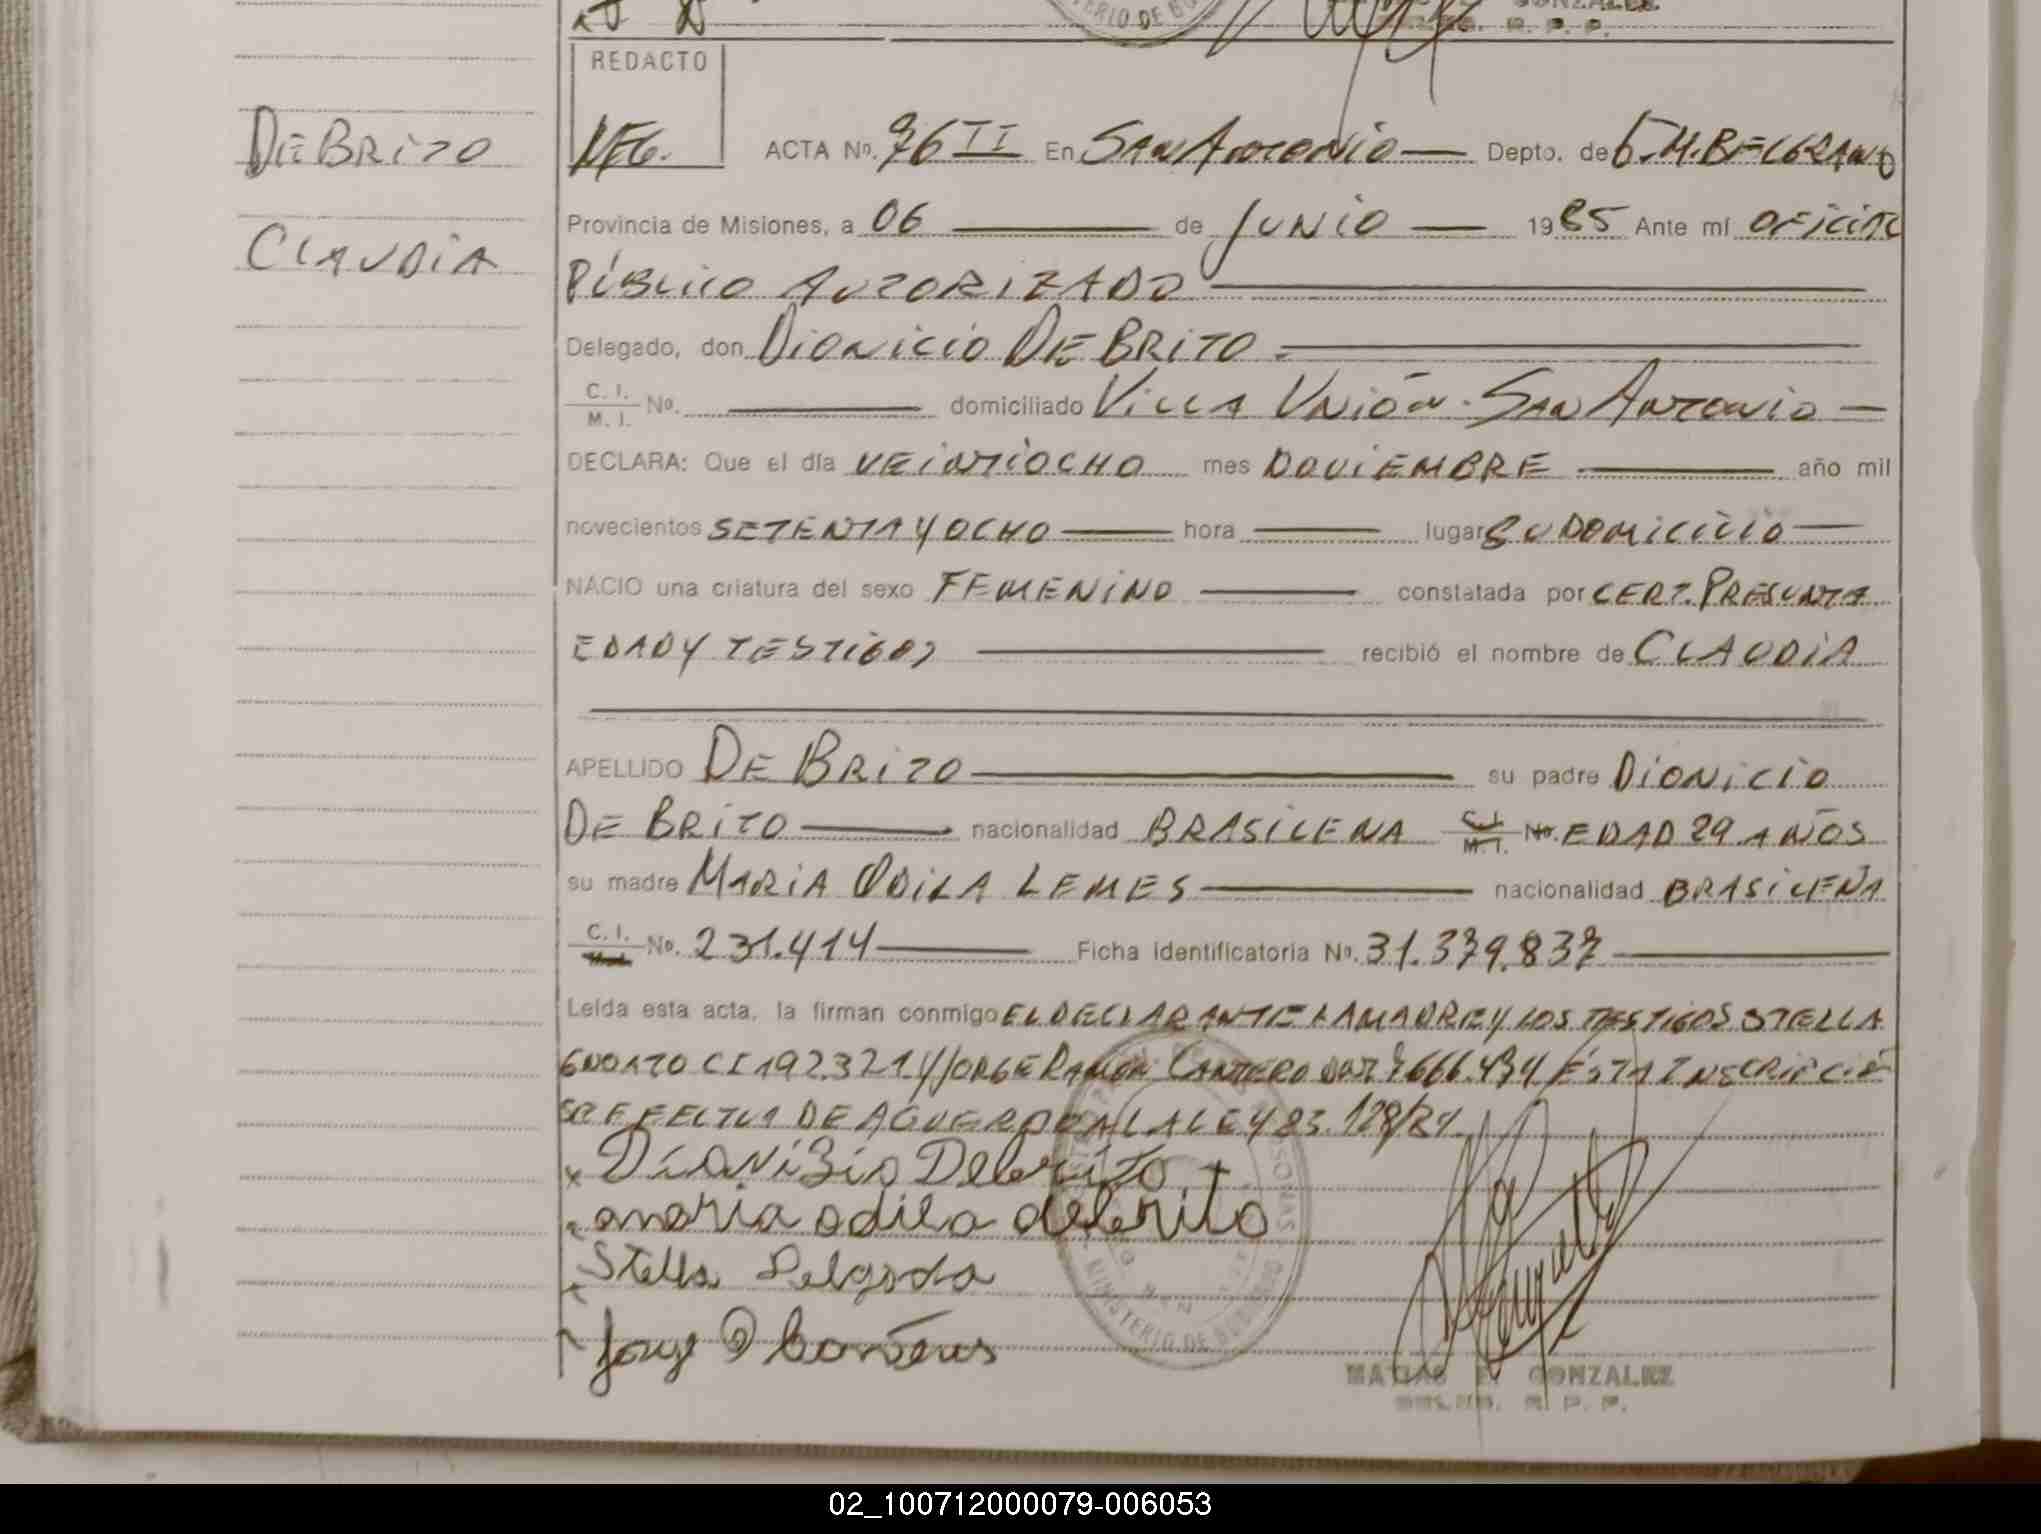 GONZALEZ
R. P. P.
REDACTO
DE BRITO
CLAUDIA
NEG. ACTA Nº. 76 II En SAN ANTONIO Depto. de G.M.BELGRANO
Provincia de Misiones, a 06 de JUNIO 1985 Ante mí OFICIAL
PÚBLICO AUTORIZADO
Delegado, don DIONICIO DE BRITO
C. I. / M. I. No. domiciliado VILLA UNIÓN - SAN ANTONIO
DECLARA: Que el día VEINTIOCHO mes NOVIEMBRE año mil
novecientos SETENTA Y OCHO hora lugar SU DOMICILIO
NACIO una criatura del sexo FEMENINO constatada por CERT. PRESUNTA
EDAD Y TESTIGOS recibió el nombre de CLAUDIA
APELLIDO DE BRITO su padre DIONICIO
DE BRITO nacionalidad BRASILENA C.I. / M. I. No. EDAD 29 AÑOS
su madre MARIA ODILA LEMES nacionalidad BRASILEÑA
C. I. No. 231.414 Ficha identificatoria Nº. 31.379.837
Leída esta acta, la firman conmigo EL DECLARANTE LA MADRE Y LOS TESTIGOS STELLA
CI 192.321 Y JORGE RAMON CANTERO 7666.434 ÉSTA INSCRIPCIÓN
SE EFECTUA DE AGUERDO AL LA LEY 23.128/84
x Dionizio Debrito
maria odila debrito
Stella Delgado
Jorge R Canteros
MINISTERIO DE GOBIERNO
MATIAS E. GONZALEZ
R. P. P.
02_100712000079-006053